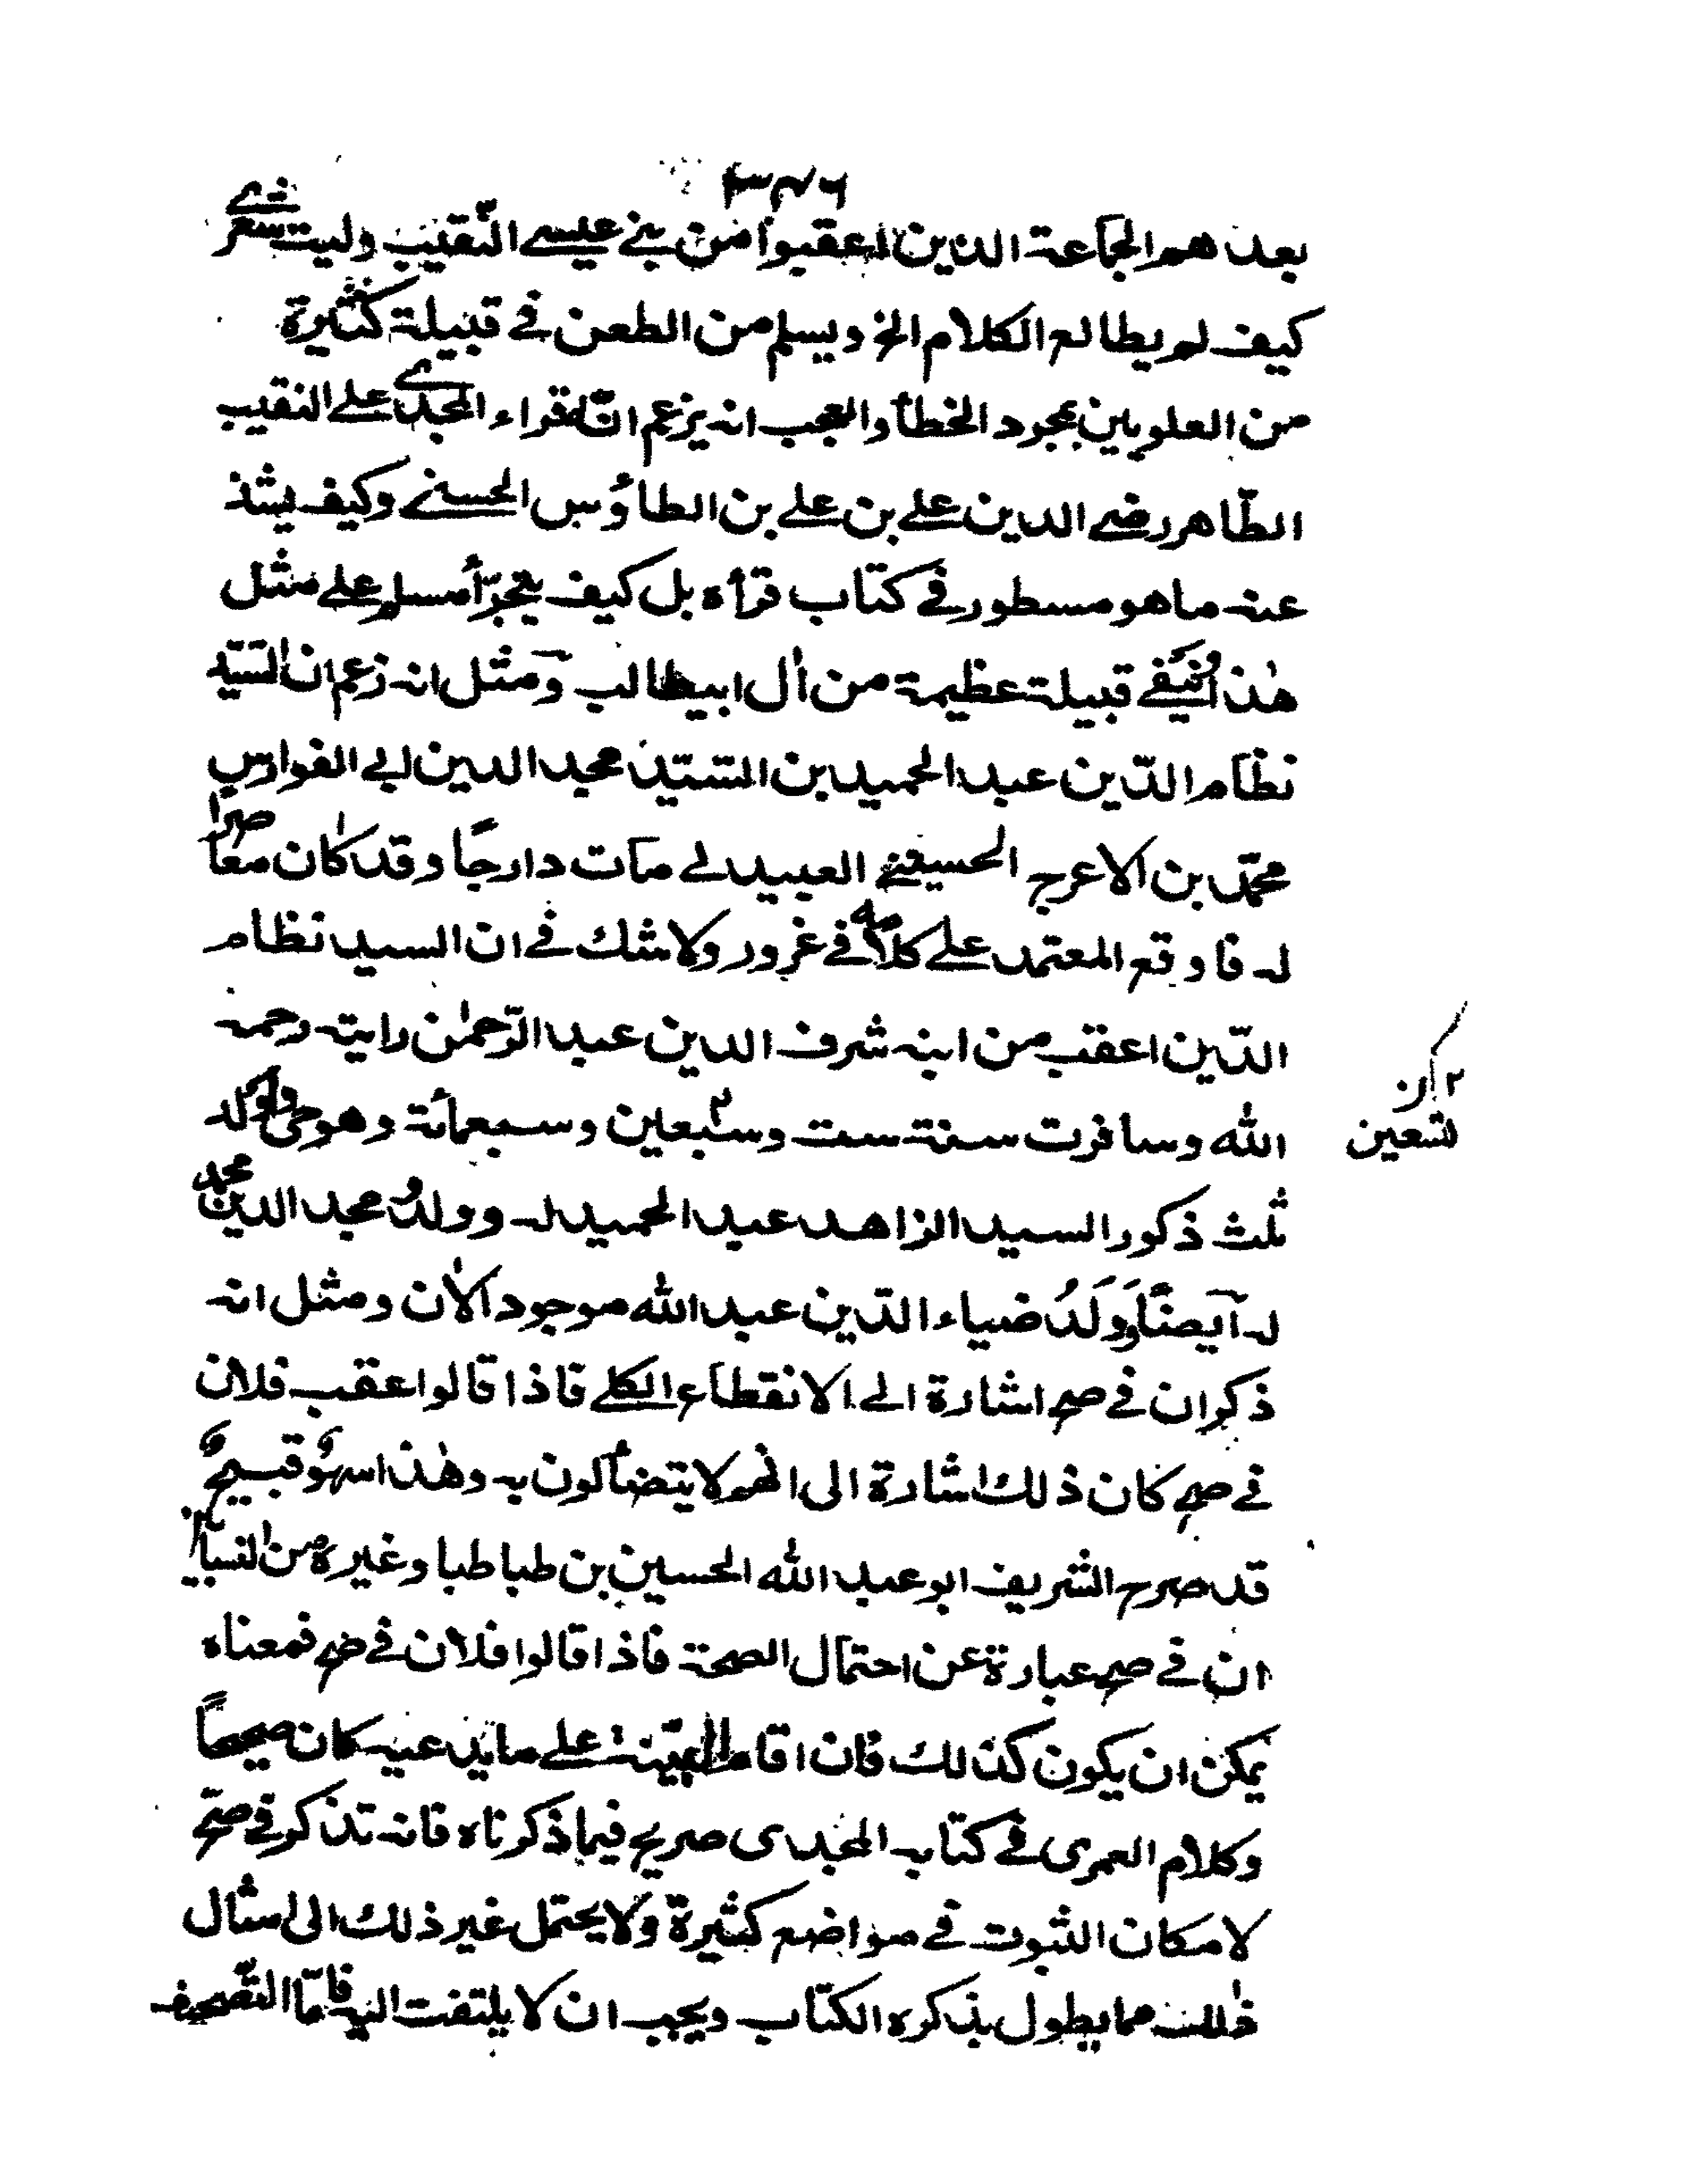 ٣٤٦
بعد هم الجماعة الذين اعقبوا من بني عيسى النّقيب وليت شعري
كيف لم يطالع الكلام الخ ويسلم من الطعن في قبيلة كثيرة
من العلويين بمجرد الخطأ والعجب انه يزعم انّه قراء المجدى على النقيب
الطّاهر رضي الدين علي بن علي بن الطاؤس الحسني وكيف يشذ
عنه ما هو مسطور في كتاب قرأه بل كيف يتجرّأ مسلم على مثل
هذا قبيلة عظيمة من اٰل ابيطالب ومثل انه زعم ان السّيّد
نظام الدّين عبد الحميد بن السّيّد مجد الدين ابي الفوارس
محمّد بن الاعرج الحسيني العبيدلي مات دارجًا وقد كان معاصرا
له فاوقع المعتمد على كلامه في غرور ولا شك في ان السيد نظام
الدّين اعقب من ابنه شرف الدين عبد الرّحمٰن رايته رحمة
الله وسافرت سنة ست وسبعين وسبعمائة وهو حي وله ولد
تسعين
ثلث ذكور السيد الزاهد عبد الحميد له وولدُ مجد الدين محمد
له آيضًا وَوَلَدُ ضياء الدّين عبد الله موجود الاٰن ومثل انه
ذكر ان في صح اشارة الى الانقطاع الكلي فاذا قالوا اعقب فلان
في صح كان ذلك اشارة الى انهم لا يتضألون به وهٰذا سهو قبيح و
قد صرح الشريف ابو عبد الله الحسين بن طباطبا وغيره من النسابين
ان في صح عبارة عن احتمال الصحة فاذا قالوا فلان في صح فمعناه
يمكن ان يكون كذلك فان اقام البيّنة على ما يدعيه كان صحيحاً
وكلام العمرى في كتابه المجدى صريح فيما ذكرناه فانه تذكر في صحّ
لامكان الثبوت في مواضع كثيرة ولا يحتمل غير ذلك الى امثال
ذٰلك مما يطول بذكره الكتاب ويجب ان لا يلتفت اليه فامّا التّصحيف